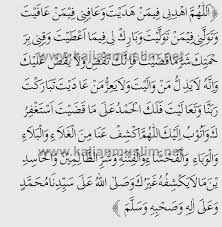 ﴿ اَللّٰهُمَّ اهْدِنِى فِيمَنْ هَدَيْتَ وَعَافِنِى فِيمَنْ عَافَيْتَ
وَتَوَلَّنِى فِيمَنْ تَوَلَّيْتَ وَبَارِكْ لِى فِيمَا اَعْطَيْتَ وَقِنِى بِرَ
حْمَتِكَ شَرَّمَا قَضَيْتَ فَاِنَّكَ تَقْضِى وَلَا يُقْضٰى عَلَيْكَ
وَاِنَّهُ لَايَذِلُّ مَنْ وَالَيْتَ وَلَايَعِزُّ مَنْ عَادَيْتَ تَبَارَكْتَ
رَبَّنَا وَتَعَالَيْتَ فَلَكَ الْحَمْدُ عَلٰى مَا قَضَيْتَ اَسْتَغْفِرُكَ
وَاَتُوْبُ اِلَيْكَ اَللّٰهُمَّ اكْشِفْ عَنَّا مِنَ الْغَلَاءِ وَالْبَلَاءِ
وَالْوَبَاءِ وَالْفَحْشَاءِ وَالْفِتْنَةِ وَشَرِّ الظَّالِمِيْنَ وَالْحَاسِدِ
يْنَ مَا لَايَكْشِفُهُ غَيْرُكَ وَصَلَّى اللهُ عَلٰى سَيِّدِنَا مُحَمَّدٍ
وَعَلٰى اٰلِهِ وَصَحْبِهِ وَسَلَّمَ ﴾
www.kajianmuslim.net
www.kajianmuslim.net